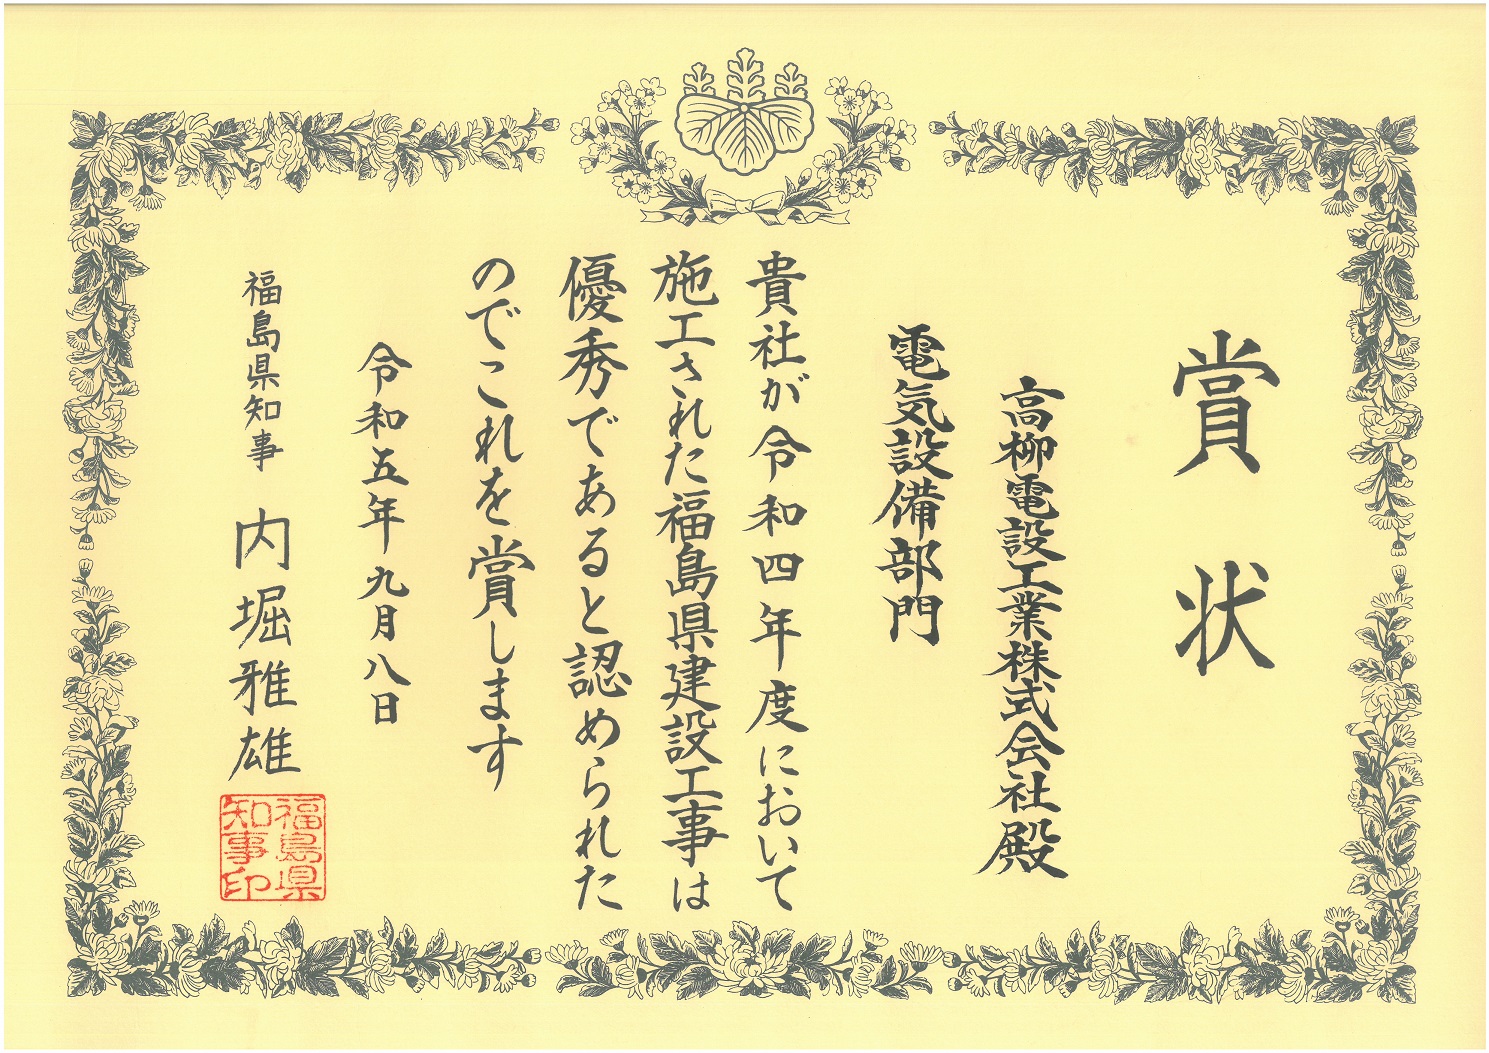 賞状
高柳電設工業株式会社殿
電気設備部門
貴社が令和四年度において
施工された福島県建設工事は
優秀であると認められた
のでこれを賞します
令和五年九月八日
福島県知事 内堀雅雄
福島県
知事印